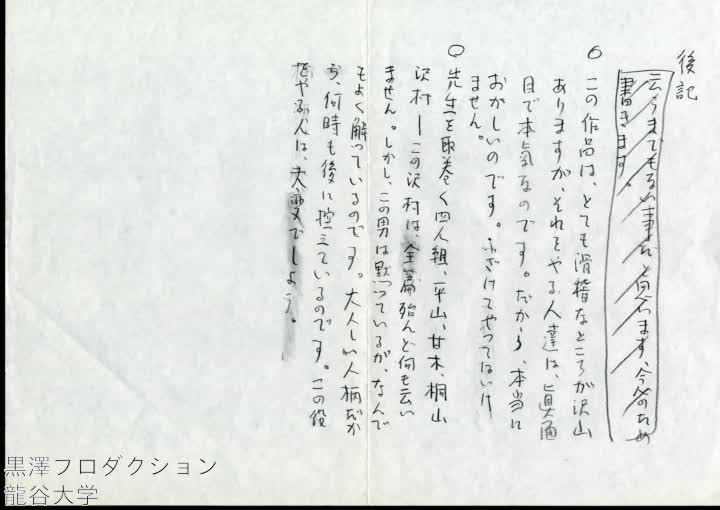 後記
云うまでもない事だと思います、念のため
書きます。
○ この作品は、とても滑稽なところが沢山
ありますが、それをやる人達は、真面
目で本気なのです。だから、本当に
おかしいのです。ふざけてやってはいけ
ません。
○ 先生を取巻く四人組、平山、甘木、桐山
沢村ーこの沢村は、全篇殆んど何も云い
ません。しかし、この男は黙っているが、なんで
もよく解っているのです。大人しい人柄だか
ら、何時も後に控えているのです。この役
をやる人は、大変でしょう。
黒澤プロダクション
龍谷大学